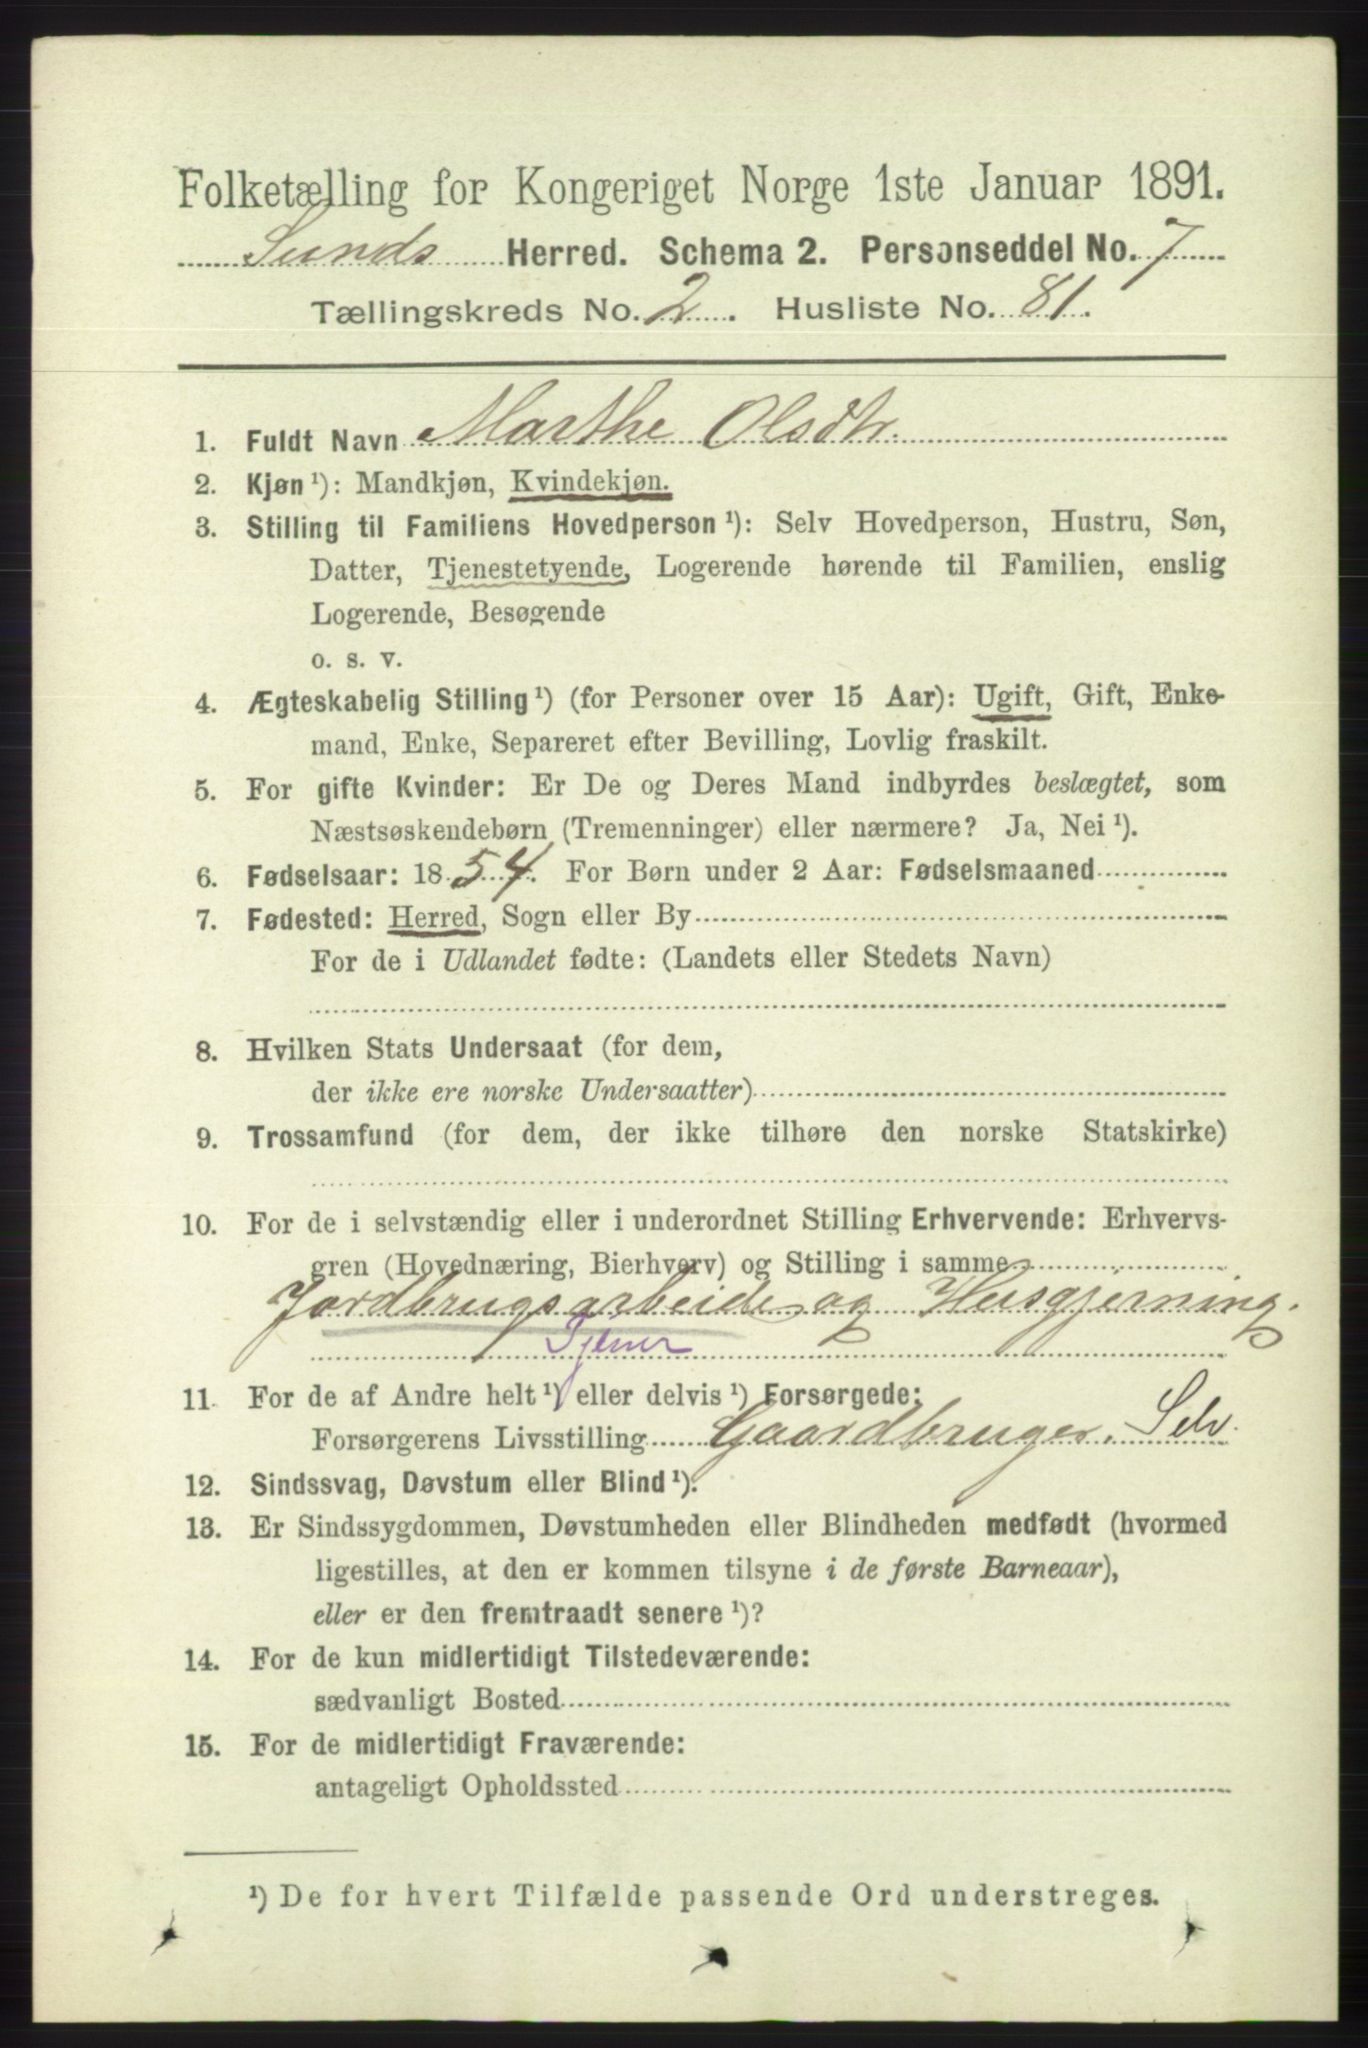 Folketælling for Kongeriget Norge 1ste Januar 1891.
Sunds Herred. Schema 2. Personseddel No. 7
Tællingskreds No. 2. Husliste No. 81.
1. Fuldt Navn Marthe Olsdtr.
2. Kjøn ¹): Mandkjøn, Kvindekjøn.
3. Stilling til Familiens Hovedperson ¹): Selv Hovedperson, Hustru, Søn,
Datter, Tjenestetyende, Logerende hørende til Familien, enslig
Logerende, Besøgende
o. s. v.
4. Ægteskabelig Stilling ¹) (for Personer over 15 Aar): Ugift, Gift, Enke-
mand, Enke, Separeret efter Bevilling, Lovlig fraskilt.
5. For gifte Kvinder: Er De og Deres Mand indbyrdes beslægtet, som
Næstsøskendebørn (Tremenninger) eller nærmere? Ja, Nei ¹).
6. Fødselsaar: 1854. For Børn under 2 Aar: Fødselsmaaned
7. Fødested: Herred, Sogn eller By
For de i Udlandet fødte: (Landets eller Stedets Navn)
8. Hvilken Stats Undersaat (for dem,
der ikke ere norske Undersaatter)
9. Trossamfund (for dem, der ikke tilhøre den norske Statskirke)
10. For de i selvstændig eller i underordnet Stilling Erhvervende: Erhvervs-
gren (Hovednæring, Bierhverv) og Stilling i samme
Jordbrugsarbeide og Husgjerning.
Tjener
11. For de af Andre helt ¹) eller delvis ¹) Forsørgede:
Forsørgerens Livsstilling Gaardbruger. Selv.
12. Sindssvag, Døvstum eller Blind ¹).
13. Er Sindssygdommen, Døvstumheden eller Blindheden medfødt (hvormed
ligestilles, at den er kommen tilsyne i de første Barneaar),
eller er den fremtraadt senere ¹)?
14. For de kun midlertidigt Tilstedeværende:
sædvanligt Bosted
15. For de midlertidigt Fraværende:
antageligt Opholdssted
¹) De for hvert Tilfælde passende Ord understreges.